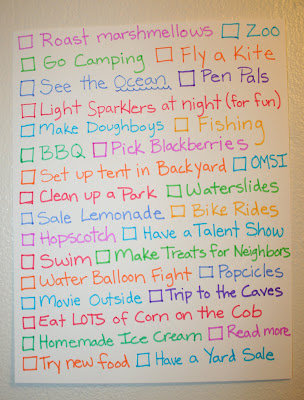 Roast marshmellows Zoo
Go Camping Fly a Kite
See the Ocean Pen Pals
Light Sparklers at night (for fun)
Make Doughboys Fishing
BBQ Pick Blackberries
Set up tent in Backyard OMSI
Clean up a Park Waterslides
Sale Lemonade Bike Rides
Hopscotch Have a Talent Show
Swim Make Treats for Neighbors
Water Balloon Fight Popcicles
Movie Outside Trip to the Caves
Eat LOTS of Corn on the Cob
Homemade Ice Cream Read more
Try new food Have a Yard Sale